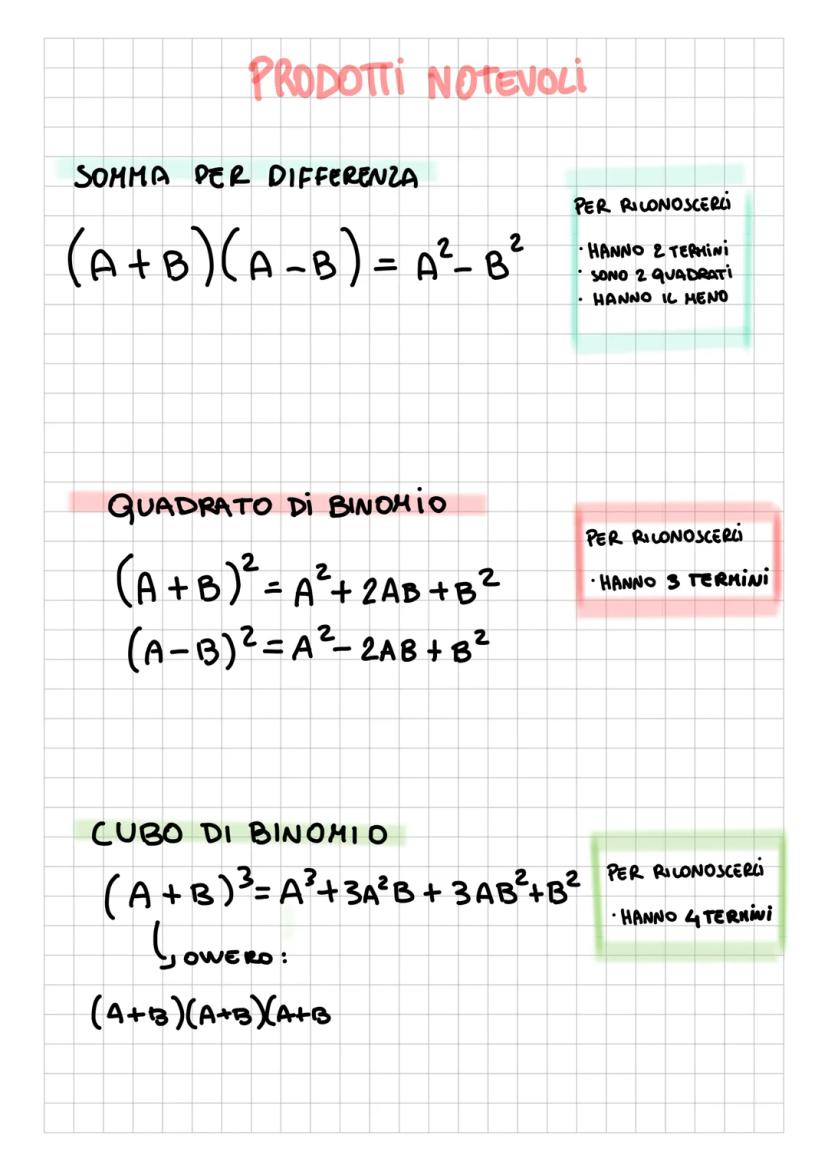 PRODOTTi NOTEVOLi
SOMMA PER DIFFERENZA
(A+B)(A-B) = A²- B²
PER RICONOSCERLi
· HANNO 2 TERMiNi
· SONO 2 QUADRATi
· HANNO IL MENO
QUADRATO Di BINOMiO
(A+B)²= A²+ 2AB + B²
(A-B)²= A²- 2AB + B²
PER RICONOSCERLi
· HANNO 3 TERMiNi
CUBO DI BINOMIO
(A+B)³= A³+3A²B + 3AB²+B²
PER RICONOSCERLi
· HANNO 4 TERMiNi
OVVERO:
(A+B)(A+B)(A+B